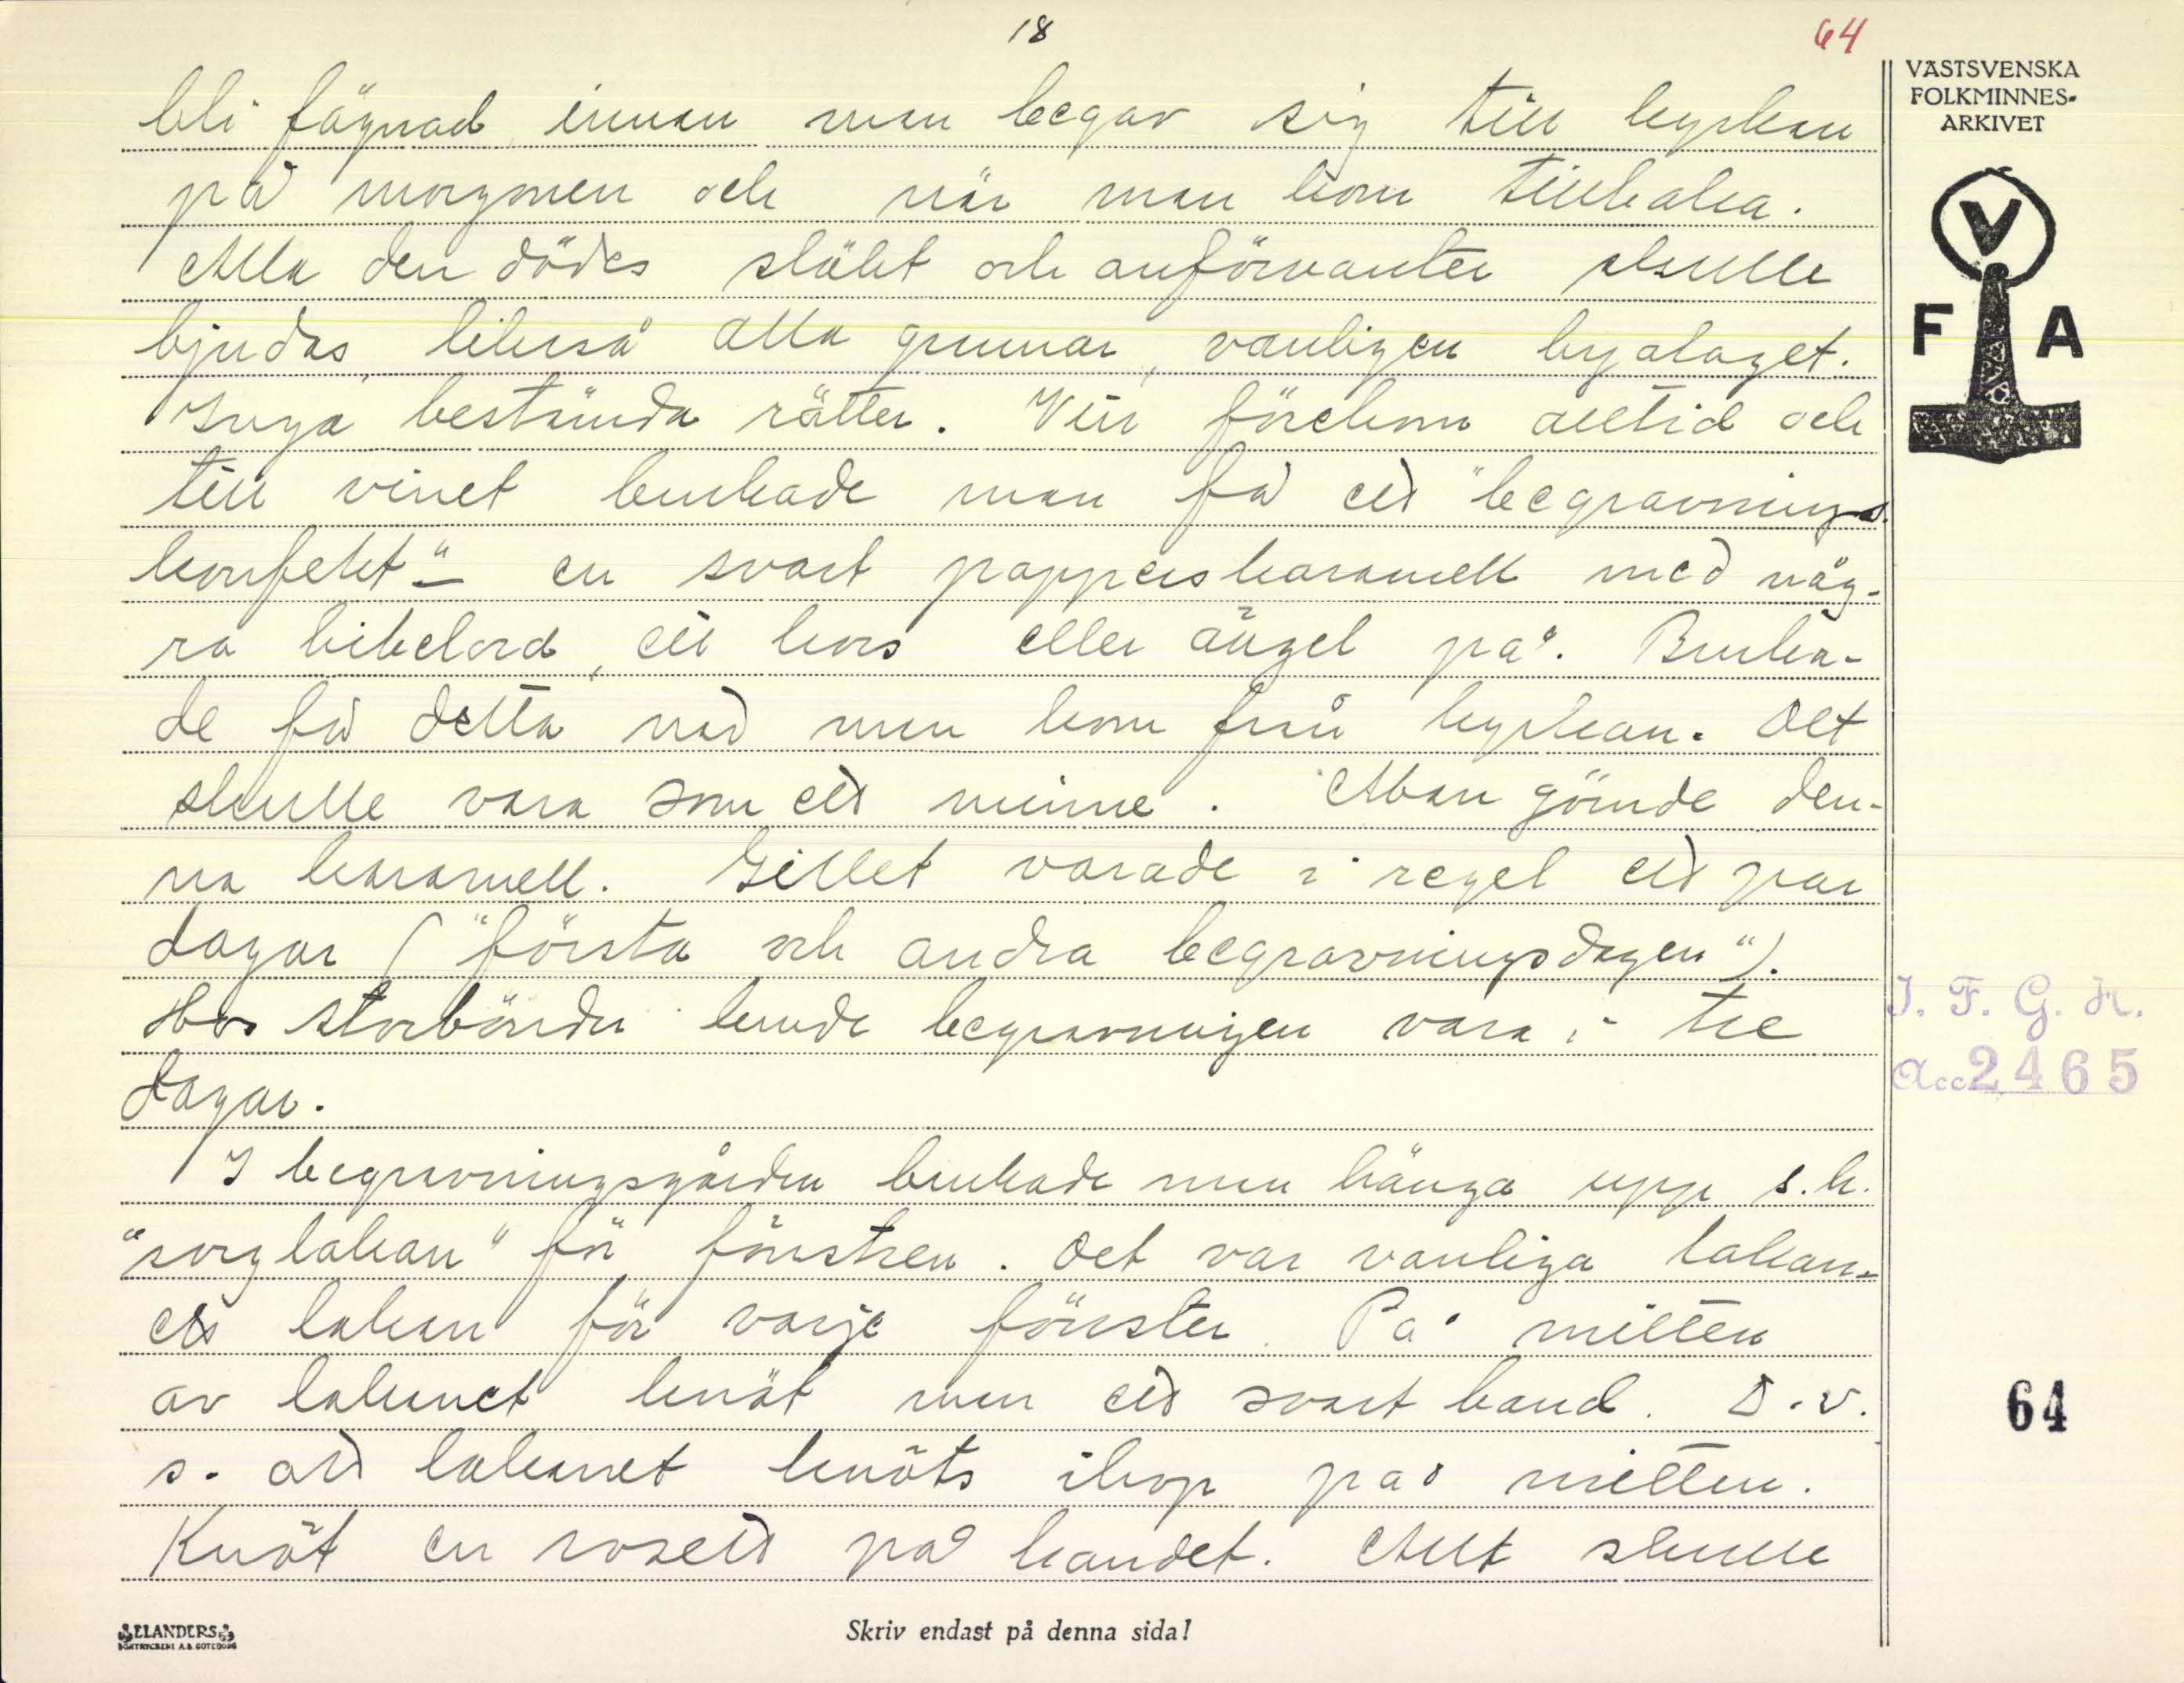 18
64
VÄSTSVENSKA
FOLKMINNES-
ARKIVET
V
F A
bli fägnad, innan man begav sig till kyrkan
på morgonen och när man kom tillbaka.
Alla den dödes släkt och anförvanter skulle
bjudas, likaså alla grannar, vanligen byalaget.
Inga bestämda rätter. Vin förekom alltid och
till vinet brukade man få ett "begravnings-
konfekt" - en svart papperskaramell med någ-
ra bibelord, ett kors eller ängel på. Bruka-
de få detta när man kom från kyrkan. Det
skulle vara som ett minne. Man gömde den-
na karamell. Gillet varade i regel ett par
dagar ("första och andra begravningsdagen").
Hos storbönder kunde begravningen vara i tre
dagar.
I begravningsgården brukade man hänga upp s.k.
"sorglakan" för fönstren. Det var vanliga lakan-
ett lakan för varje fönster. På mitten
av lakanet knöt man ett svart band. D.v.
s. att lakanet knöts ihop på mitten.
Knöt en rosett på bandet. Allt skulle
I. F. G. H.
Acc 2465
64
ELANDERS
BOKTRYCKERI A.B. GÖTEBORG
Skriv endast på denna sida!